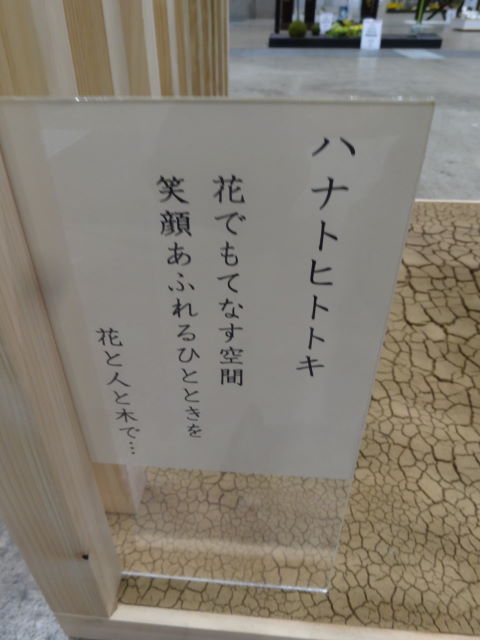 ハナトヒトトキ
花でもてなす空間
笑顔あふれるひとときを
花と人と木で…